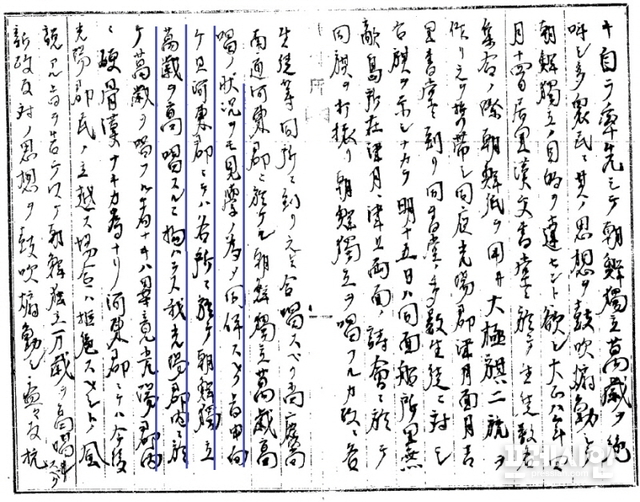 自ラ率先シテ朝鮮獨立萬歳ヲ絶
呼シ多衆民ニ其ノ思想ヲ鼓吹搧動シ
朝鮮獨立ノ目的ヲ達セント欲シ大正八年四
月十四日居里漢文書堂ニ於テ生徒數名
集合ノ際朝鮮紙ヲ用ヰ大極旗二旒ヲ
作リ之ヲ携帯シ同夜光陽郡津月面月吉
里書堂ニ到リ同書堂ノ多數生徒ニ対シ
右旗ヲ示シナカラ明十五日ハ同面船所里無
敵島 津月、津上両面ノ詩會ニ於テ
同旗ヲ打振リ朝鮮獨立ヲ唱フル故、各
生徒等同所ニ到リ之ニ合唱スベク尚慶尚
南道河東郡ニ於ケル朝鮮獨立萬歳高
唱ノ状況ヲモ見學ノ為メ同伴スヘク旨申向
ケ且河東郡ニテハ各所ニ於テ朝鮮獨立
萬歳ヲ高唱スルニ拘ハラス我光陽郡内ニ於
テ萬歳ヲ唱フル者ナキハ畢竟光陽郡内
ニ硬骨漢ナキカ為ナリ河東郡ニテハ今後
光陽郡民ノ立越ス場合ハ拒絶スヘシトノ風
説アル旨ヲ告ケ以テ朝鮮独立万歳ヲ高唱
新政反対ノ思想ヲ鼓吹搧動シ益々反抗
프레시안